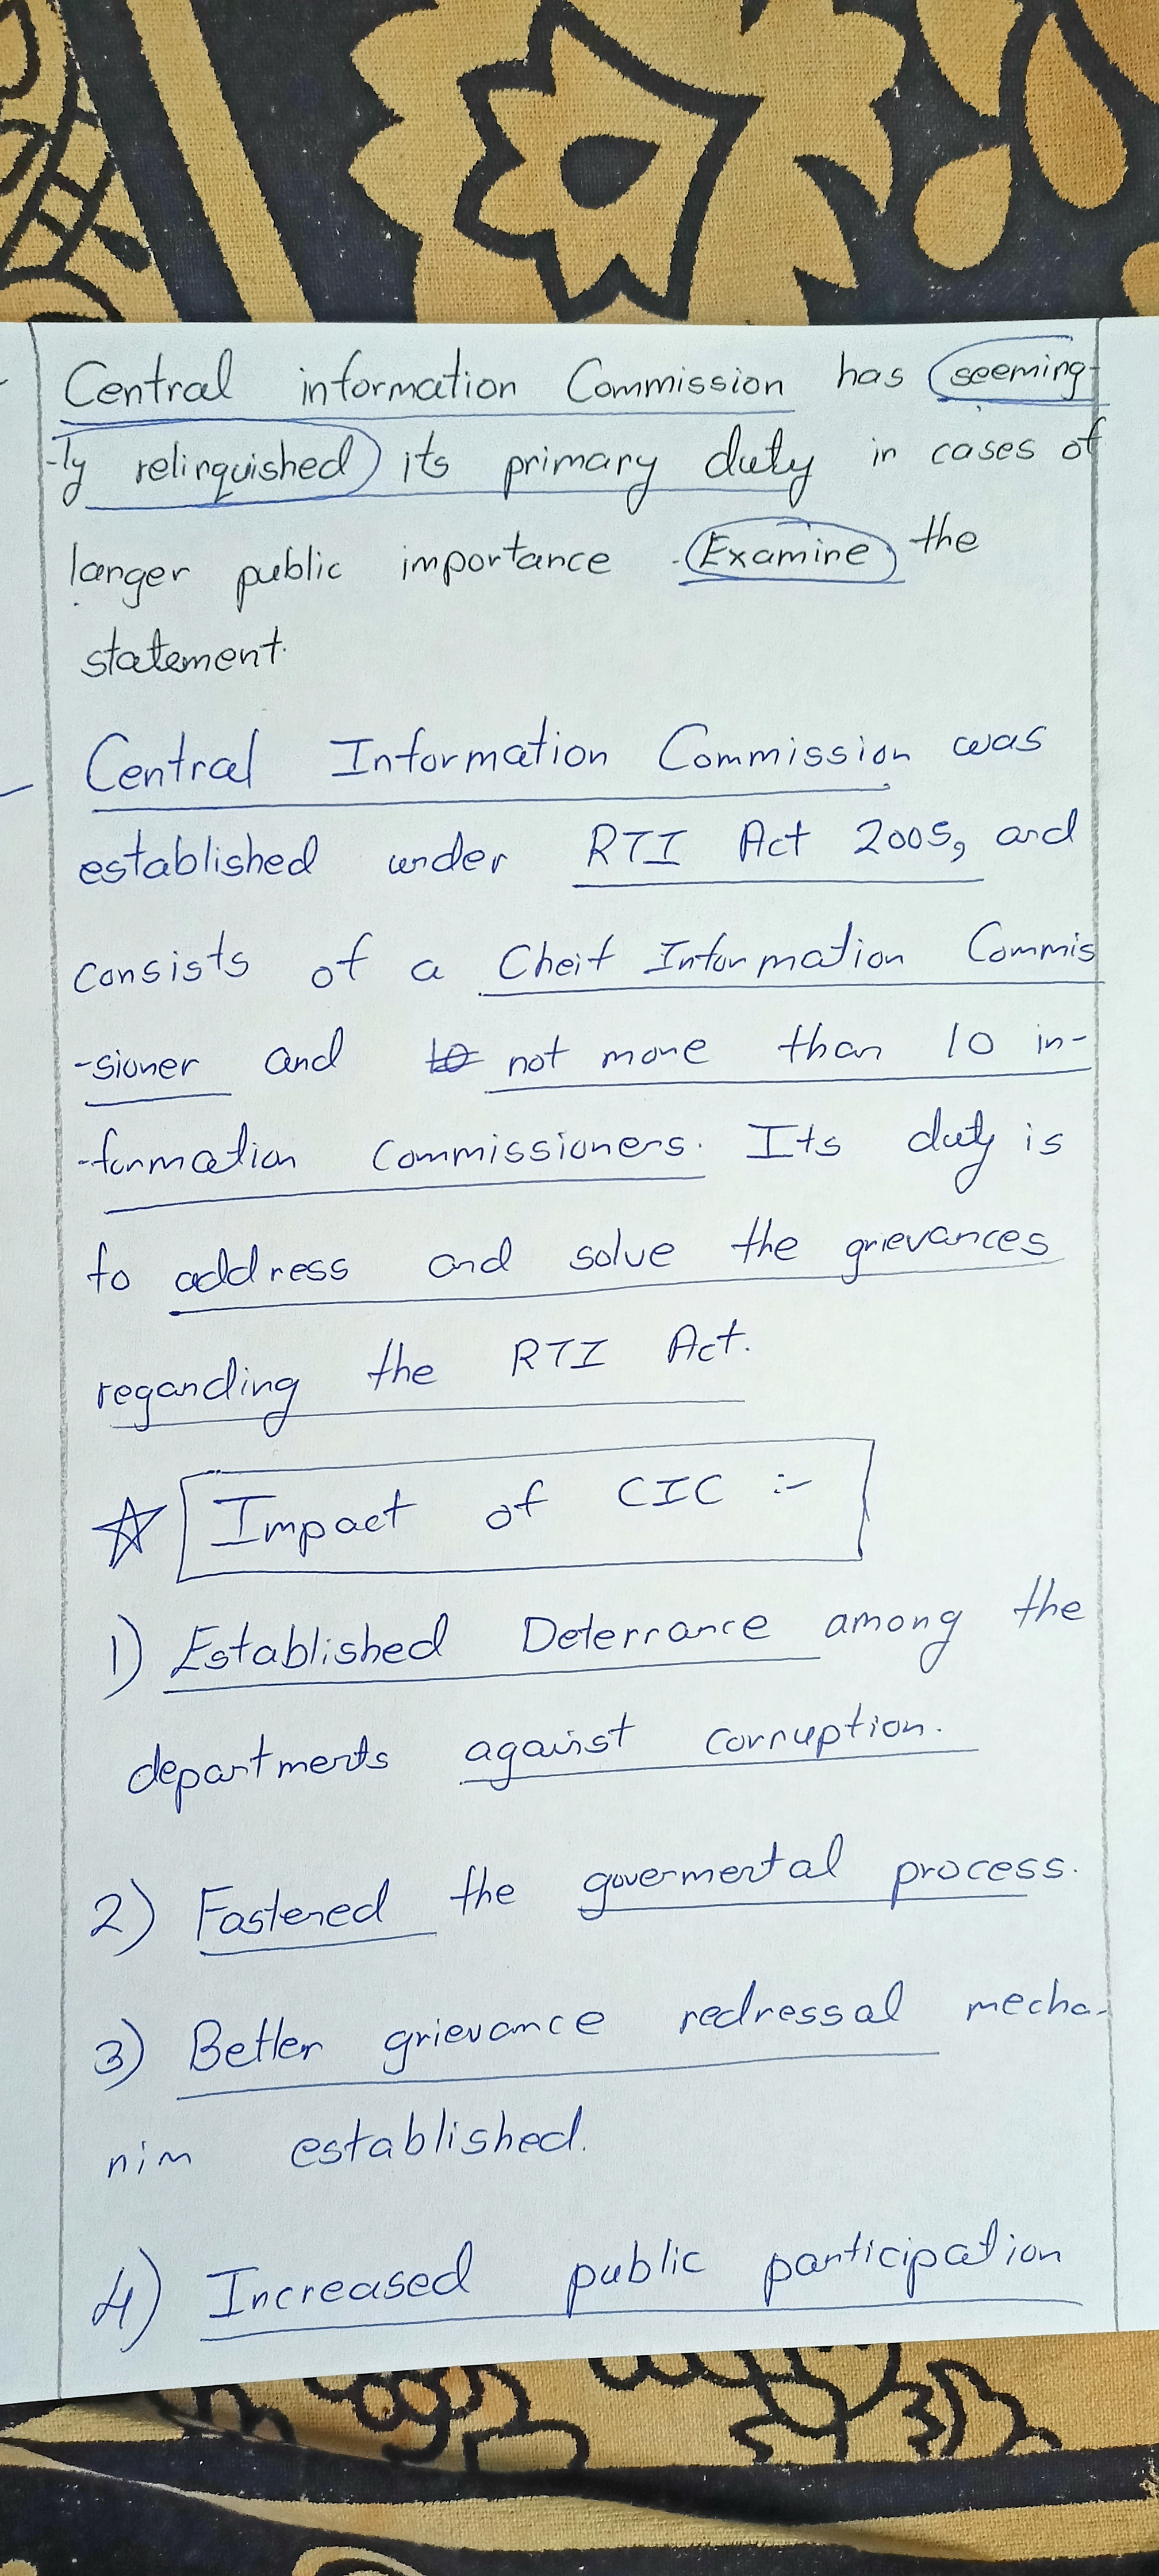 Central information Commission has seeming-
-ly relinquished its primary duty in cases of
larger public importance. Examine the
statement.
Central Information Commission was
established under RTI Act 2005, and
consists of a Cheif Information Commis
-sioner and to not more than 10 in-
-formation Commissioners. Its duty is
to address and solve the grievances
regarding the RTI Act.
☆ Impact of CIC :-
1) Established Deterrance among the
departments against corruption.
2) Fastened the govermental process.
3) Better grievance redressal mecha-
nim established.
4) Increased public participation